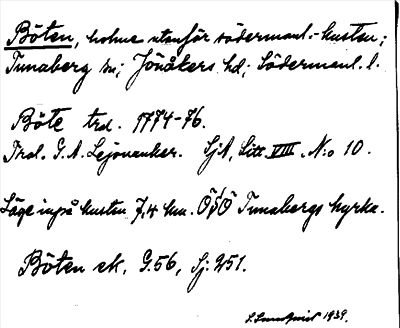 Böten, holme utanför södermanl.-kusten;
Tunaberg sn; Jönåkers hd; Södermanl. l.
Böte trd. 1774-76.
Trol. G. A. Lejonanker. SjA, Litt. VIII. N:o 10.
Läge inpå kusten 7,4 km. ÖSÖ Tunabergs kyrka.
Böten ek. G.56, Sj: 251.
1939.